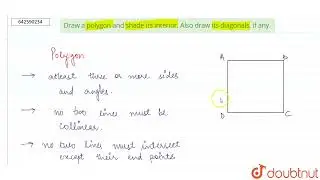 642590234
Draw a polygon and shade its interior. Also draw its diagonals, if any.
Polygon
→ atleast three or more sides
and angles.
→ no two lines must be
collinear.
→ no two lines must intersect
except their end points
A
B
D
C
doubtnut